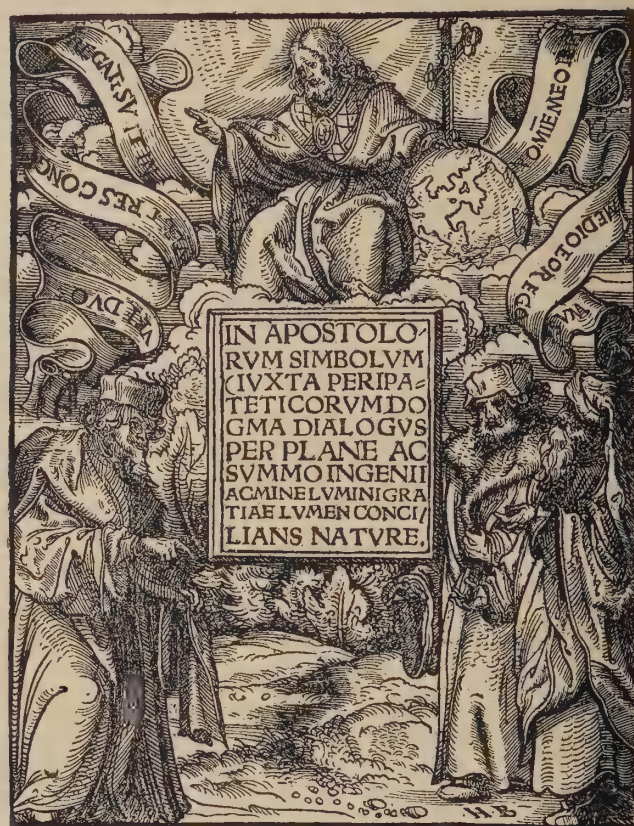 EGAT SV
RES CONG
DVO
MEO
MEDIO EOR EGO
IN APOSTOLO-
RVM SIMBOLVM
(IVXTA PERIPA=
TETICORVM DO
GMA DIALOGVS
PER PLANE AC
SVMMO INGENII
ACMINE LVMINI GRA
TIAE LVMEN CONCI/
LIANS NATVRE.
.H.B